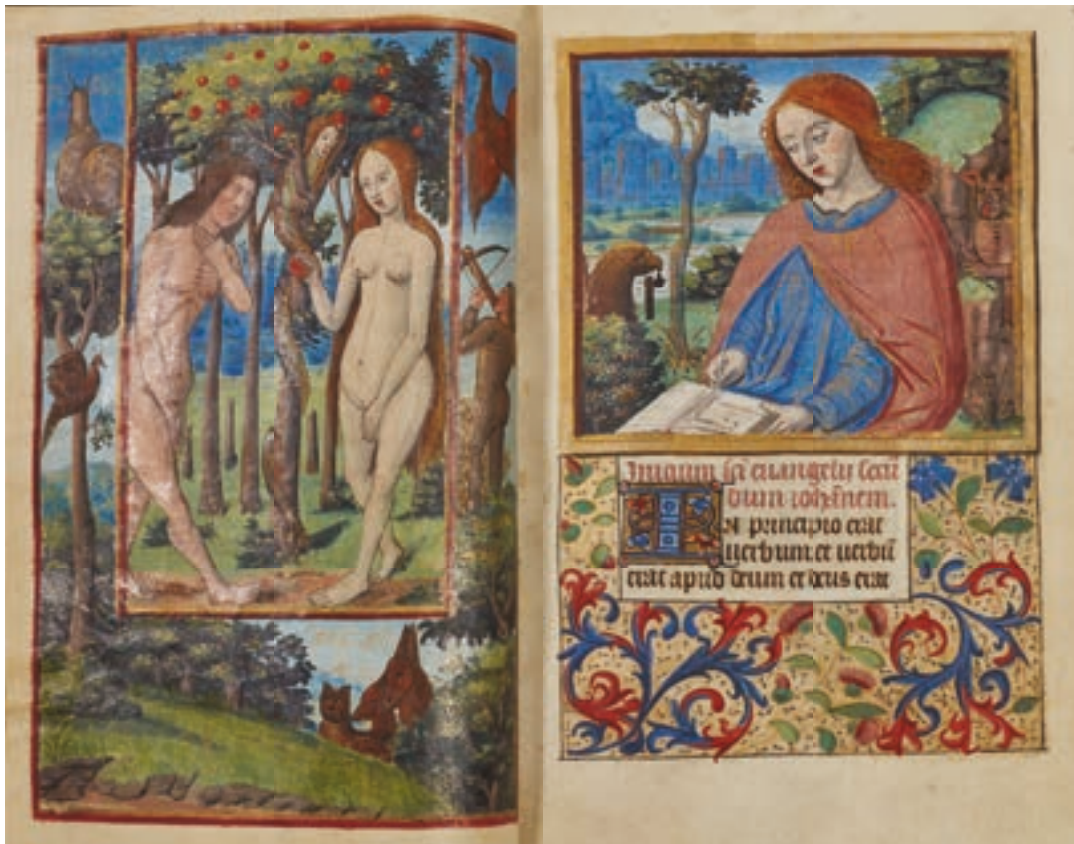 Inicium sc̄i euangelij secū
dum iohānem.
IN principio erat
uerbum et uerbū
erat apud deum et deus erat